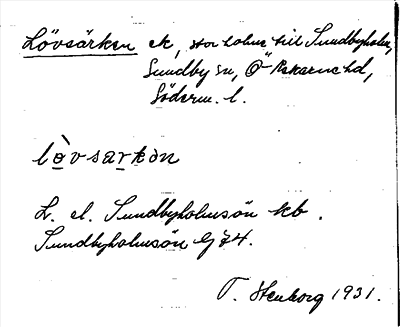 Lövsärken ek, stor holme till Sundbyholm,
Sundby sn, Ö-Rekarne hd,
Söderm. l.
lòvsarkən
L. el. Sundbyholmsön kb.
Sundbyholmsön G 74.
T. Stenborg 1931.